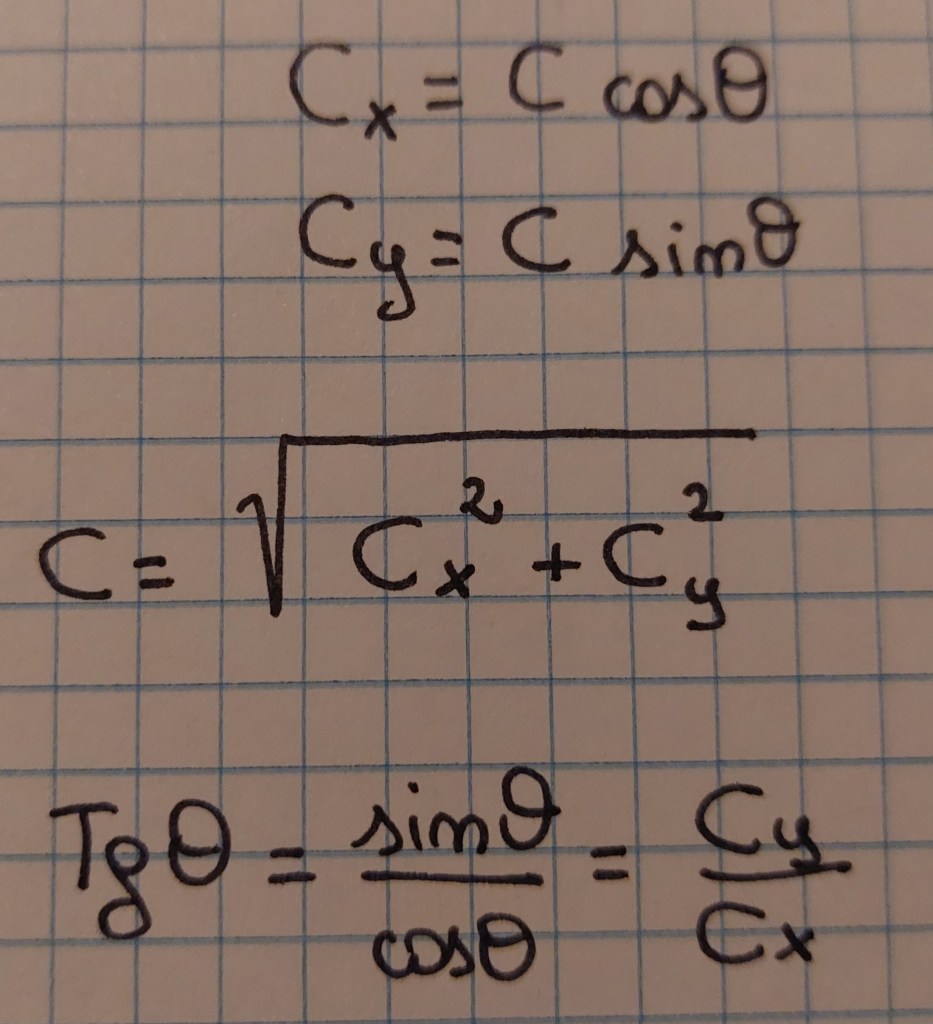 Cx = C cosθ
Cy = C sinθ
C = √(Cx² + Cy²)
Tgθ = sinθ/cosθ = Cy/Cx